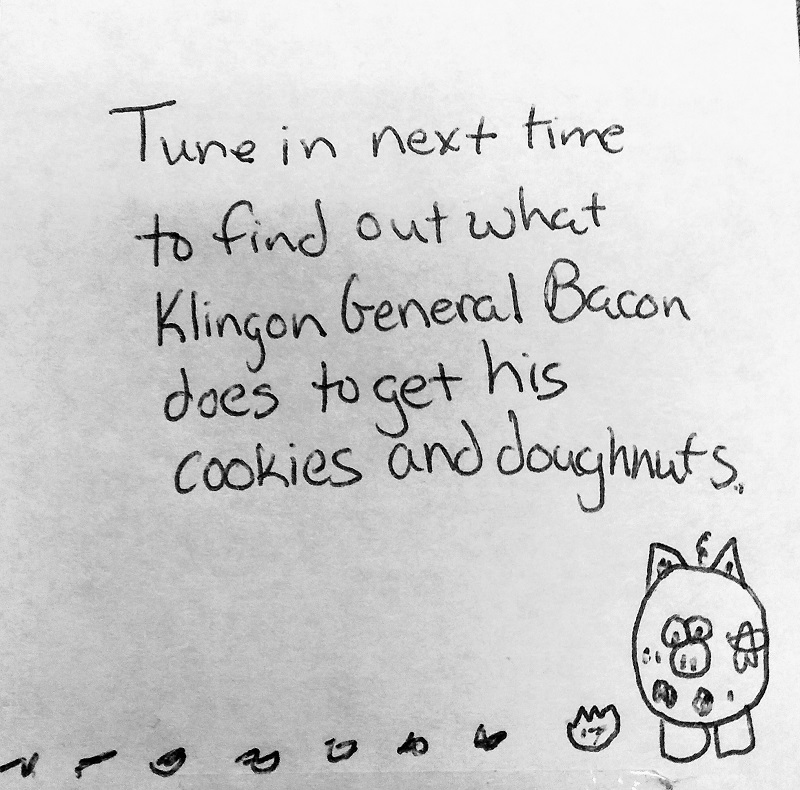 Tune in next time
to find out what
Klingon General Bacon
does to get his
cookies and doughnuts.